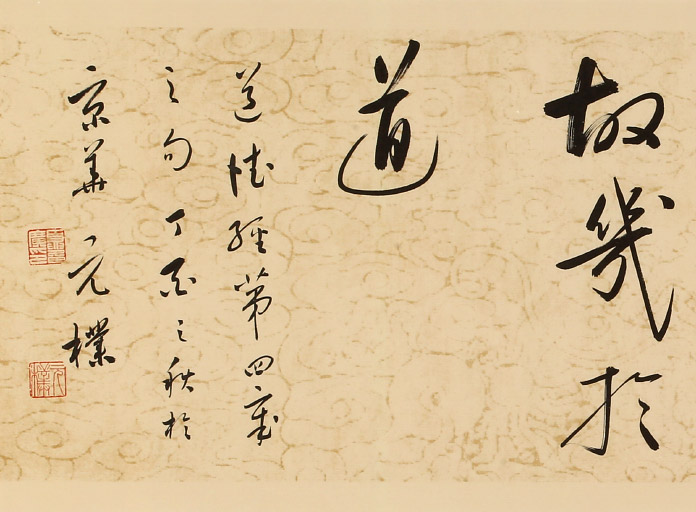 故幾於
道
道德經第四章
之句丁酉之秋於
京華元樸